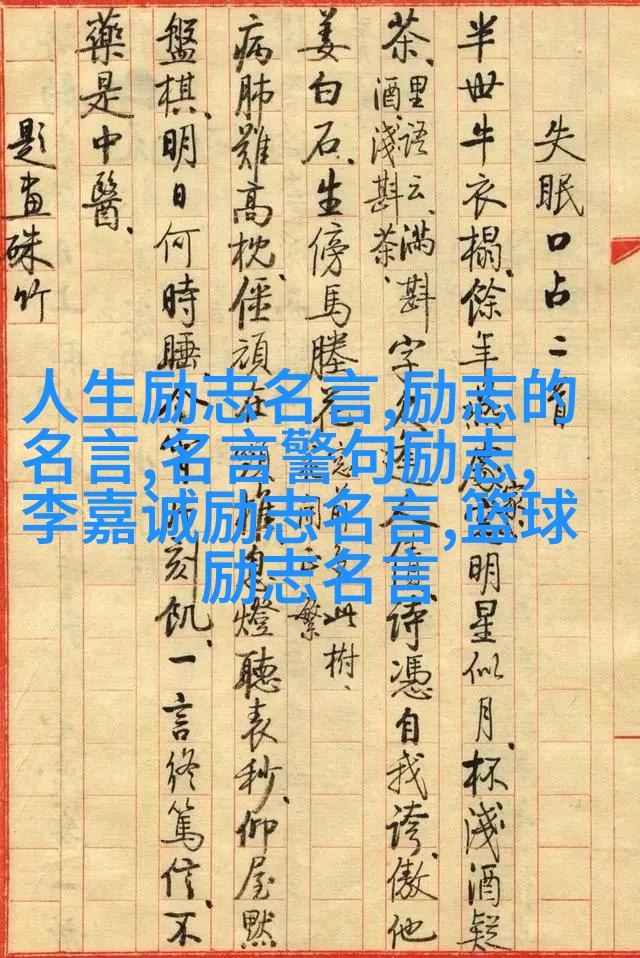 失眠口占二首
半世牛衣榻、餘年燕 家、明星似月、杯淺酒疑
茶、里語云、满斟酒、淺斟茶、字 人借 詩憑自我誇、傲他
姜白石、生傍馬塍花 此樹、繁
病肺難高枕、僵頑在 燈聽表秒、仰屋默
盤棋、明日何時睡、 刻飢、一言終篤信、不
藥是中醫、
題畫硃竹
人生励志名言,励志的
名言,名言警句励志,
李嘉诚励志名言,篮球
励志名言